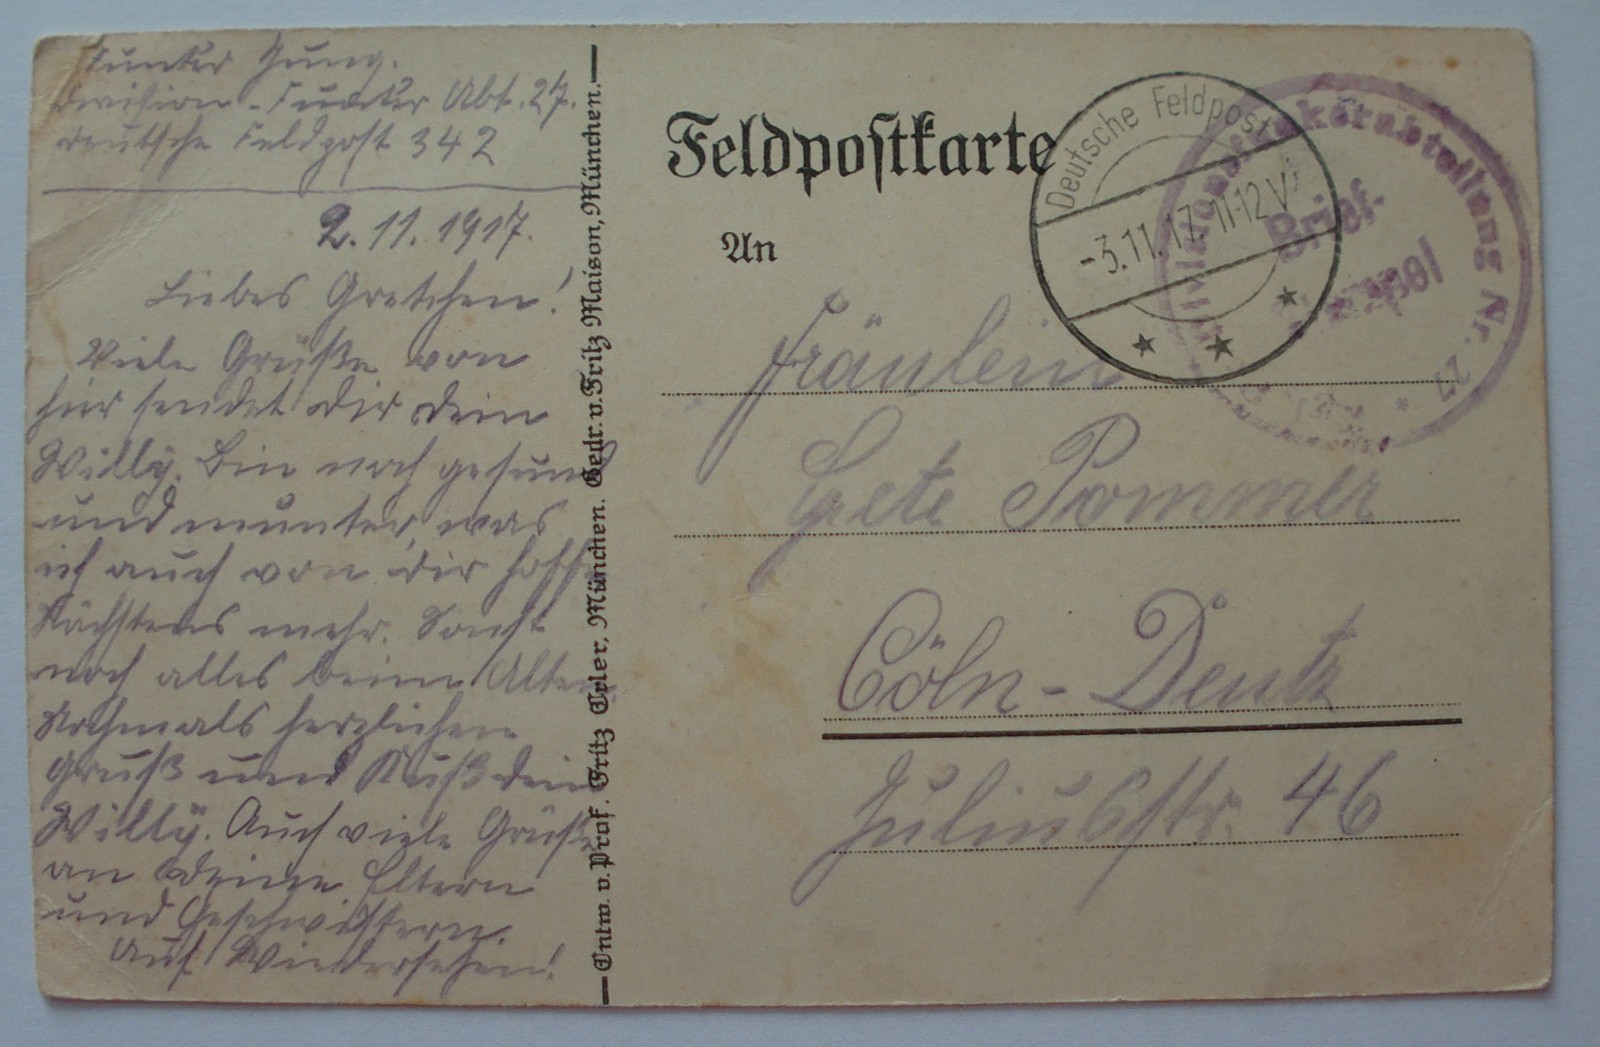 Funker Jung.
Division-Funker Abt. 27.
Deutsche Feldpost 342
2.11.1917.
Liebes Gretchen!
Viele Grüße von
hier sendet dir dein
Willy. Bin noch gesund
und munter, was
ich auch von dir hoffe
Nächstens mehr. Sonst
noch alles beim Alten
Nochmals herzlichen
Gruß und Kuß dein
Willy. Auch viele Grüße
an deine Eltern
und Geschwistern.
Auf Wiedersehen!
Entw. v. Prof. Fritz Erler, München. Gedr. v. Fritz Maison, München.
Feldpostkarte
An
Deutsche Feldpost
-3.11.17. 11-12 V
Divisionsfunkerabteilung Nr. 27
Brief-
stempel
Fräulein
Grete Pommer
Cöln-Deutz
Juliusstr. 46